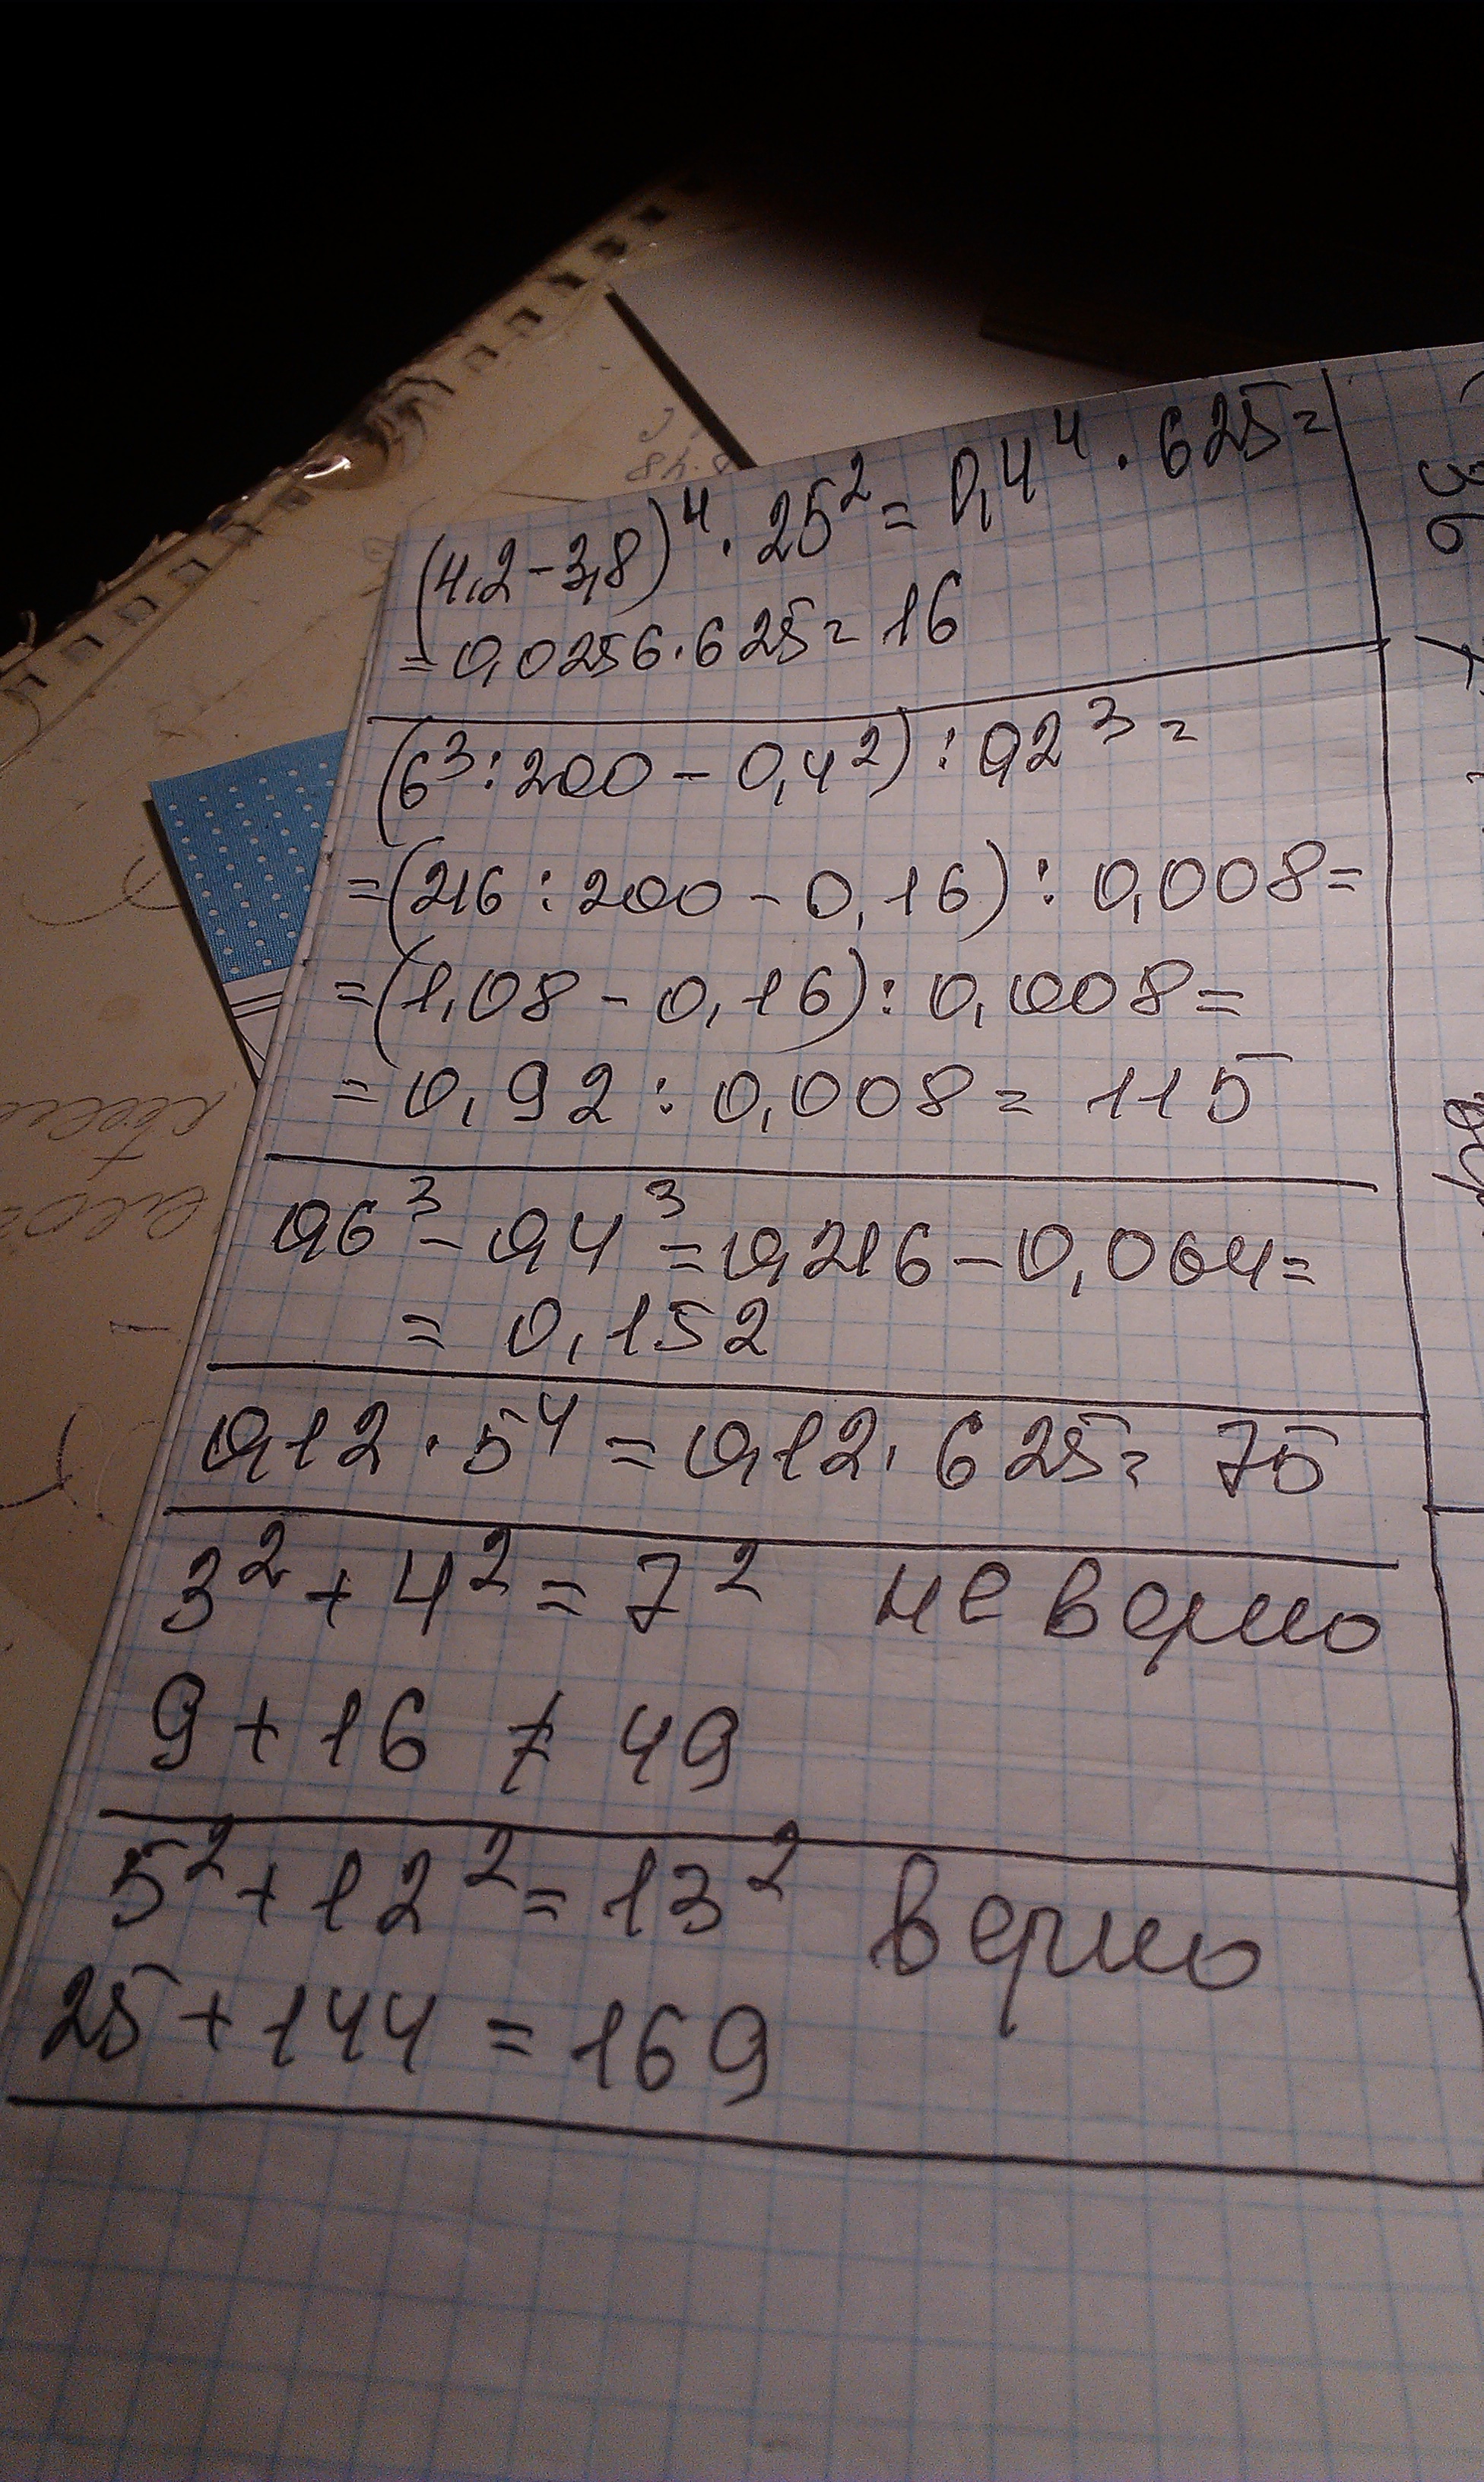 (4,2-3,8)⁴·25²=0,4⁴·625=
=0,0256·625=16
(6³:200-0,4²):0,2³=
=(216:200-0,16):0,008=
=(1,08-0,16):0,008=
=0,92:0,008=115
0,6³-0,4³=0,216-0,064=
=0,152
0,12·5⁴=0,12·625=75
3²+4²=7² не верно
9+16≠49
5²+12²=13² верно
25+144=169